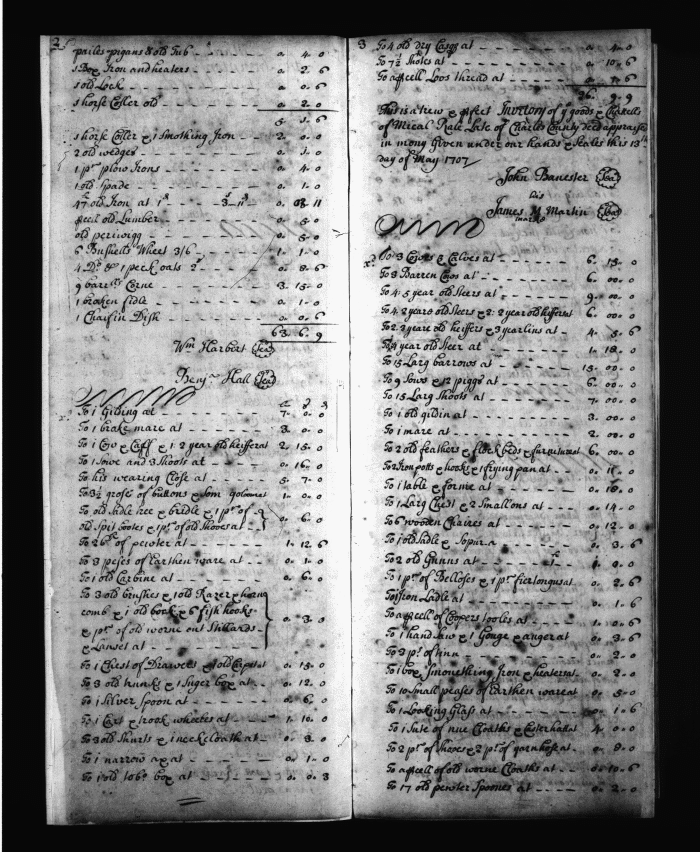 2
pailes piggans & old Tub - - - 0. 4. 0
1 Box Iron and heaters - - - 0. 2. 6
1 old Lock - - - 0. 0. 6
1 horse Coller old - - - 0. 2. 0
5 1. 6
1 horse Coller & 1 Smothing Iron - - 2. 0. 0
2 old wedges - - - 0. 1. 0
1 pr plow Irons - - - 0. 4. 0
1 old Spade - - - 0. 1. 0
47 old Iron at 0. 3. 11
old Lumber - - - 0. 5. 0
old periwigg - - - 0. 5. 0
6 Bushells Wheat 3/6 - - 1. 1. 0
4 Do & 1 peck oats 2s - - 0. 8. 6
9 barrlls Corne 3. 15. 0
1 broken fidle - - - 0. 1. 0
1 Chaifin Dish - - - 0. 0. 6
63. 6. 9
Wm Harbert Seal
Benja Hall Seal
To 1 Gilding at - - - 7. 0. 0
To 1 brake mare at - - - 3. 0. 0
To 1 Cow & Calf & 1 2 year old heifer at 2. 15. 0
To 1 Sowe and 3 Shoots at - - 0. 16. 0
To his wearing Close at - - 5. 7. 0
To 3½ grose of buttons & som 1. 0. 0
To old Sadle tree & bridle & 1 pr of
old Spit bootes & 1 pr of old Shooes at 0. 6. 0
To 26 of pewter at - - 1. 12. 6
To 3 peses of Earthen ware at - - 0. 1. 0
To 1 old Carbine at - - - 0. 6. 0
To 3 old brushes & 1 old Razer & horne
comb & 1 old book & 6 fish hooks
& 1 pr of old worne out Stillards 0. 3. 0
& Lanset at
To 1 Chest of Drawers & 1 old Carpit at 0. 15. 0
To 3 old trunks & 1 Suger box at - - 0. 12. 0
To 1 Silver Spoon at - - - 0. 6. 0
To 1 Cart & took wheeles at - - 1. 10. 0
To 3 old Shurts & 1 neck cloath at - - 0. 3. 0
To 1 narrow ax at - - - 0. 1. 0
To 1 old tobo box at - - - 0. 0. 3
3
To 4 old dry Casqs at - - - 0. 4. 0
To 7½ at - - - 0. 10. 6
To a pcell Loos thread at - - 0. 6
26. 9. 9
This is a trew & pfect Invitory of ye goods & Chattells
of Mical Late of Charles County deced appraised
in mony Given under our hands & Seales this 13th
day of May 1707
John Banester Seal
his
James M Martin Seal
marke
To 3 Cowes & Calves at - - 6. 15. 0
To 3 Barren Cows at - - - 6. 00. 0
To 4: 5 year old Steers at - - 9. 00. 0
To 4: 2 yeare old Steers & 2: 2 year old heifers at 6. 00. 0
To 2: 2 yeare old heifers & 3 yearlins at - 4. 5. 6
To 4 year old Steer at - - 1. 18. 0
To 15 Larg barrows at - - - 15. 00. 0
To 9 Sows & 12 piggs at - - 6. 00. 0
To 15 Larg Shoots at - - - 7. 00. 0
To 1 old gildin at - - - 3. 00. 0
To 1 mare at - - - 2. 00. 0
To 2 old feathers & flock beds & furniture at 6. 00. 0
To 2 Iron potts & hooks & 1 frying pan at - - 0. 11. 0
To 1 table & forme at - - 0. 18. 0
To 1 Larg Chest & 2 Small ons at - - 0. 14. 0
To 6 wooden Chaires at - - 0. 12. 0
To 1 old Sadle & - - 0. 3. 6
To 2 old Gunns at - - - 1. 0. 0
To 1 pr of Belloses & 1 pr fier tongus at 0. 2. 6
To 1 Iron Ladle at - - - 0. 1. 6
To a pcell of Coopers tooles at - - 0. 1. 0
To 1 hand saw & 1 Gouge & anger at 0. 3. 6
To 3 ps of tinn - - - 0. 2. 0
To 1 box Smoothing Iron & heaters at 0. 2. 0
To 10 Small peases of Earthen ware at - 0. 5. 0
To 1 Looking Glass at - - - 0. 1. 6
To 1 Sute of nue Cloaths & Caster hatt at 4. 0. 0
To 2 pr of Shooes & 2 pr of yarn hose at - 0. 8. 0
To a pcell of old worne Cloaths at - - 0. 10. 6
To 17 old pewter Spoones at - - 0. 2. 0